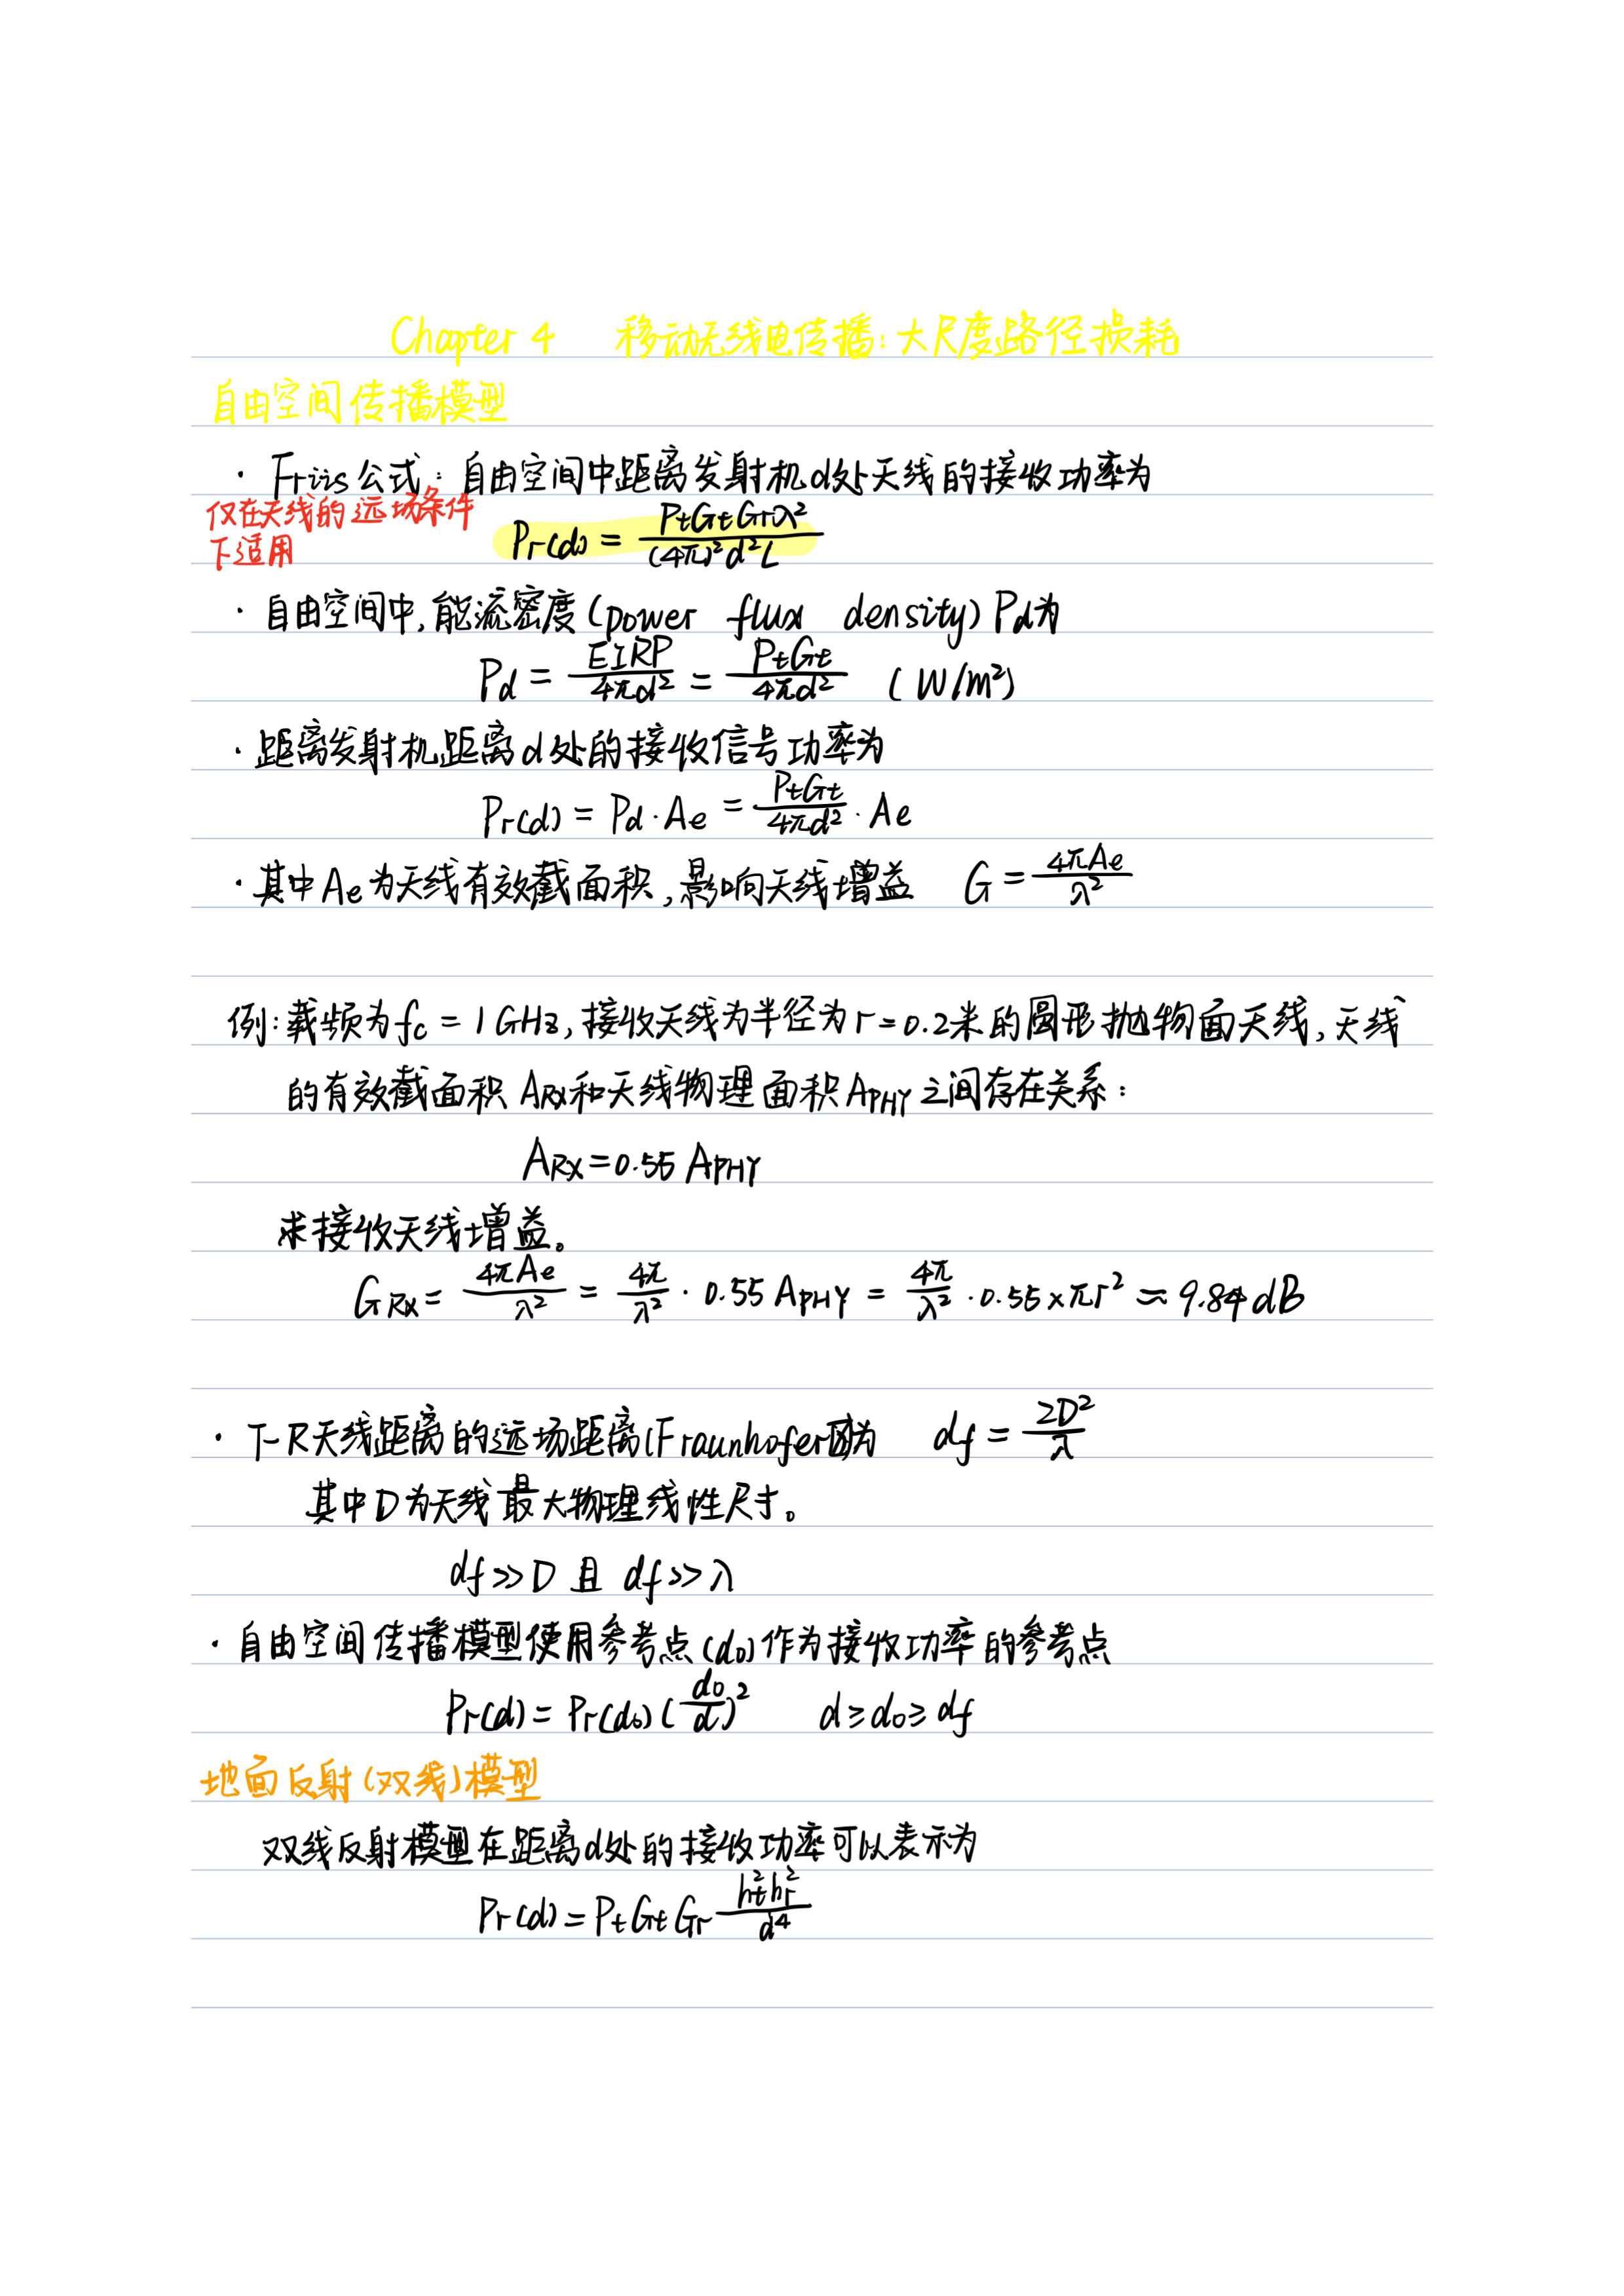 Chapter 4 移动无线电传播:大尺度路径损耗
自由空间传播模型
· Friis公式: 自由空间中距离发射机d处天线的接收功率为
仅在天线的远场条件
下适用
Pr(d) = PtGtGrλ²/((4π)²d²L)
· 自由空间中,能流密度(power flux density) Pd为
Pd = EIRP/(4πd²) = PtGt/(4πd²) (W/m²)
· 距离发射机距离d处的接收信号功率为
Pr(d) = Pd·Ae = PtGt/(4πd²)·Ae
· 其中Ae为天线有效截面积,影响天线增益 G = 4πAe/λ²
例:载频为fc = 1GHz,接收天线为半径为r=0.2米的圆形抛物面天线,天线
的有效截面积ARX和天线物理面积APHY之间存在关系:
ARX=0.55 APHY
求接收天线增益。
GRX = 4πAe/λ² = 4π/λ² · 0.55 APHY = 4π/λ² · 0.55×πr² ≈ 9.84dB
· T-R天线距离的远场距离(Fraunhofer区)为 df = 2D²/λ
其中D为天线最大物理线性尺寸。
df>>D 且 df>>λ
· 自由空间传播模型使用参考点(d0)作为接收功率的参考点
Pr(d) = Pr(d0)(d0/d)² d≥d0≥df
地面反射(双线)模型
双线反射模型在距离d处的接收功率可以表示为
Pr(d) = PtGtGr ht²hr²/d⁴